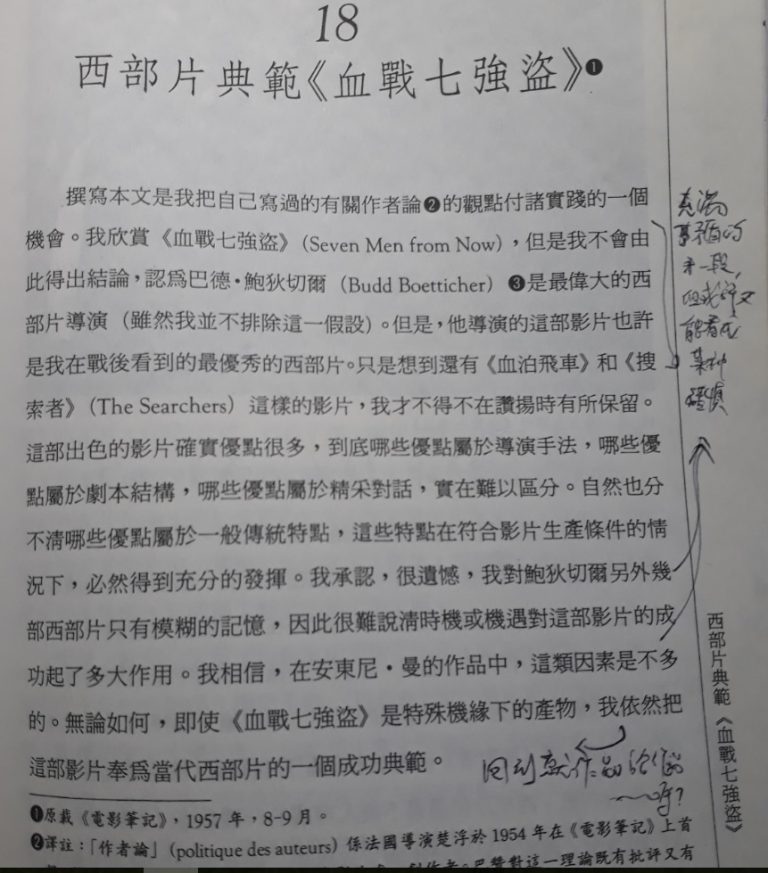 18
西部片典範《血戰七強盜》❶
撰寫本文是我把自己寫過的有關作者論❷的觀點付諸實踐的一個
機會。我欣賞《血戰七強盜》(Seven Men from Now)，但是我不會由
此得出結論，認爲巴德・鮑狄切爾（Budd Boetticher）❸是最偉大的西
部片導演（雖然我並不排除這一假設）。但是，他導演的這部影片也許
是我在戰後看到的最優秀的西部片。只是想到還有《血泊飛車》和《搜
索者》(The Searchers) 這樣的影片，我才不得不在讚揚時有所保留。
這部出色的影片確實優點很多，到底哪些優點屬於導演手法，哪些優
點屬於劇本結構，哪些優點屬於精采對話，實在難以區分。自然也分
不清哪些優點屬於一般傳統特點，這些特點在符合影片生產條件的情
況下，必然得到充分的發揮。我承認，很遺憾，我對鮑狄切爾另外幾
部西部片只有模糊的記憶，因此很難說淸時機或機遇對這部影片的成
功起了多大作用。我相信，在安東尼・曼的作品中，這類因素是不多
的。無論如何，即使《血戰七強盜》是特殊機緣下的產物，我依然把
這部影片奉爲當代西部片的一個成功典範。
❶原載《電影筆記》，1957 年，8-9 月。
❷譯註：「作者論」(politique des auteurs) 係法國導演楚浮於 1954 年在《電影筆記》上首
對這一理論既有批評又有
充滿
矛盾的
一段，
回到
作品
西部片典範《血戰七強盜》